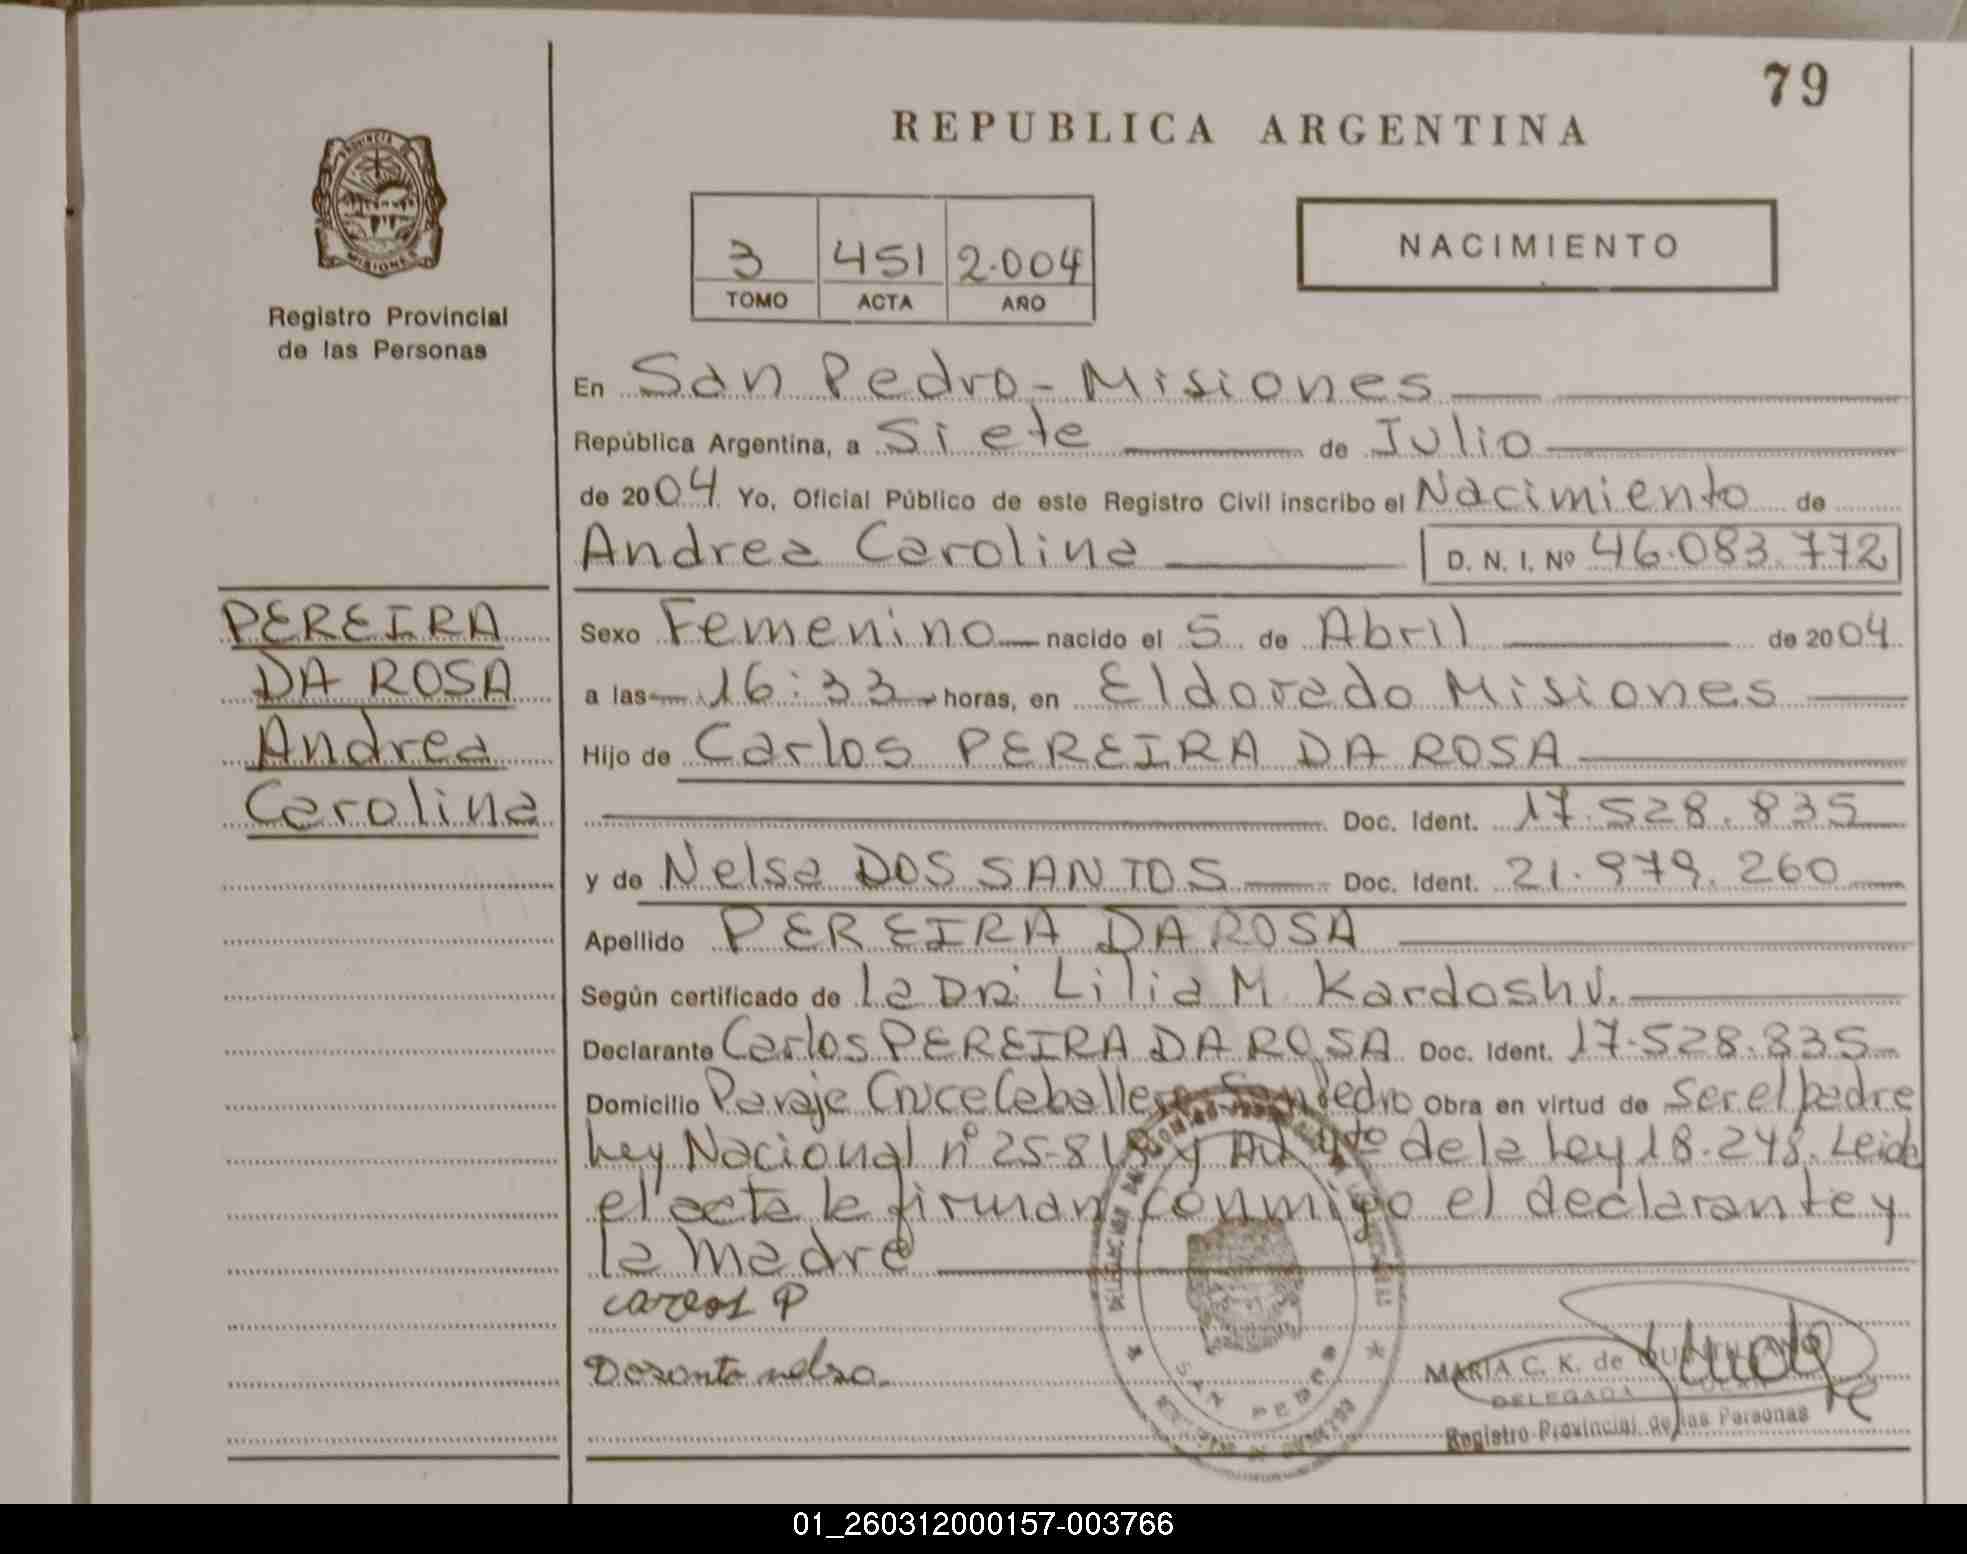 79
REPUBLICA ARGENTINA
PROVINCIA DE
MISIONES
Registro Provincial
de las Personas
3 451 2.004
TOMO ACTA AÑO
NACIMIENTO
En San Pedro - Misiones
República Argentina, a Siete de Julio
de 2004 Yo, Oficial Público de este Registro Civil inscribo el Nacimiento de
Andrea Carolina D. N. I. Nº 46.083.772
PEREIRA
DA ROSA
Andrea
Carolina
Sexo Femenino nacido el 5 de Abril de 2004
a las 16:33 horas, en Eldorado Misiones
Hijo de Carlos PEREIRA DA ROSA
Doc. Ident. 17.528.835
y de Nelsa DOS SANTOS Doc. Ident. 21.979.260
Apellido PEREIRA DA ROSA
Según certificado de la Dra. Lilia M Kardoshu.
Declarante Carlos PEREIRA DA ROSA Doc. Ident. 17.528.835
Domicilio Paraje Cruce Caballero San Pedro Obra en virtud de Ser el padre
Ley Nacional nº 25.818 y Art 4to de la Ley 18.248. Leida
el acta la firman conmigo el declarante y
la madre
Carlos P
nelsa
MARIA C. K. de
DELEGADA
Registro Provincial de las Personas
SAN PEDRO
01_260312000157-003766